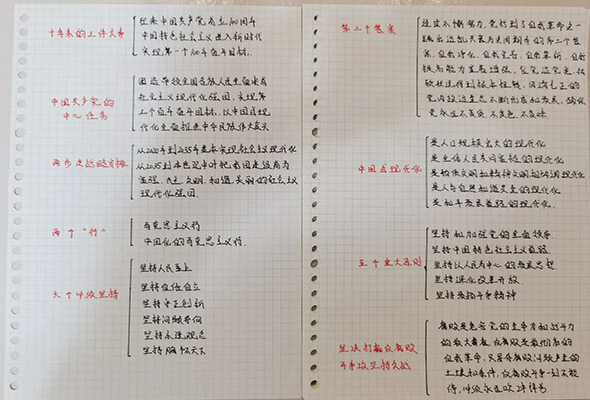 十年来的三件大事
迎来中国共产党成立100周年
中国特色社会主义进入新时代
实现第一个100年奋斗目标.
中国共产党的
中心任务
团结带领全国各族人民全面建成
社会主义现代化强国、实现第
二个百年奋斗目标,以中国式现
代化全面推进中华民族伟大复兴
两步走战略安排
从2020年到2035年基本实现社会主义现代化
从2035到本世纪中叶把我国建设成为
富强、民主、文明、和谐、美丽的社会主义
现代化强国.
两个"行"
马克思主义行
中国化的马克思主义行.
六个必须坚持
坚持人民至上
坚持自信自立
坚持守正创新
坚持问题导向
坚持系统观念
坚持胸怀天下
第二个答案
经过不懈努力,党找到了自我革命这一
跳出治乱兴衰历史周期率的第二个答
案,自我净化、自我完善、自我革新、自我
提高能力显著增强,管党治党宽松
软状况得到根本扭转,风清气正的
党内政治生态不断形成和发展,确保
党永远不变质、不变色、不变味
中国式现代化
是人口规模巨大的现代化
是全体人民共同富裕的现代化
是物质文明和精神文明相协调现代化
是人与自然和谐共生的现代化
是和平发展道路的现代化.
五个重大原则
坚持和加强党的全面领导
坚持中国特色社会主义道路
坚持以人民为中心的发展思想
坚持深化改革开放
坚持发扬斗争精神
坚决打赢反腐败
斗争攻坚持久战
腐败是危害党的生命力和战斗力
的最大毒瘤,反腐败是最彻底的
自我革命.只要存腐败问题产生的
土壤和条件,反腐败斗争一刻不能
停,必须永远吹冲锋号